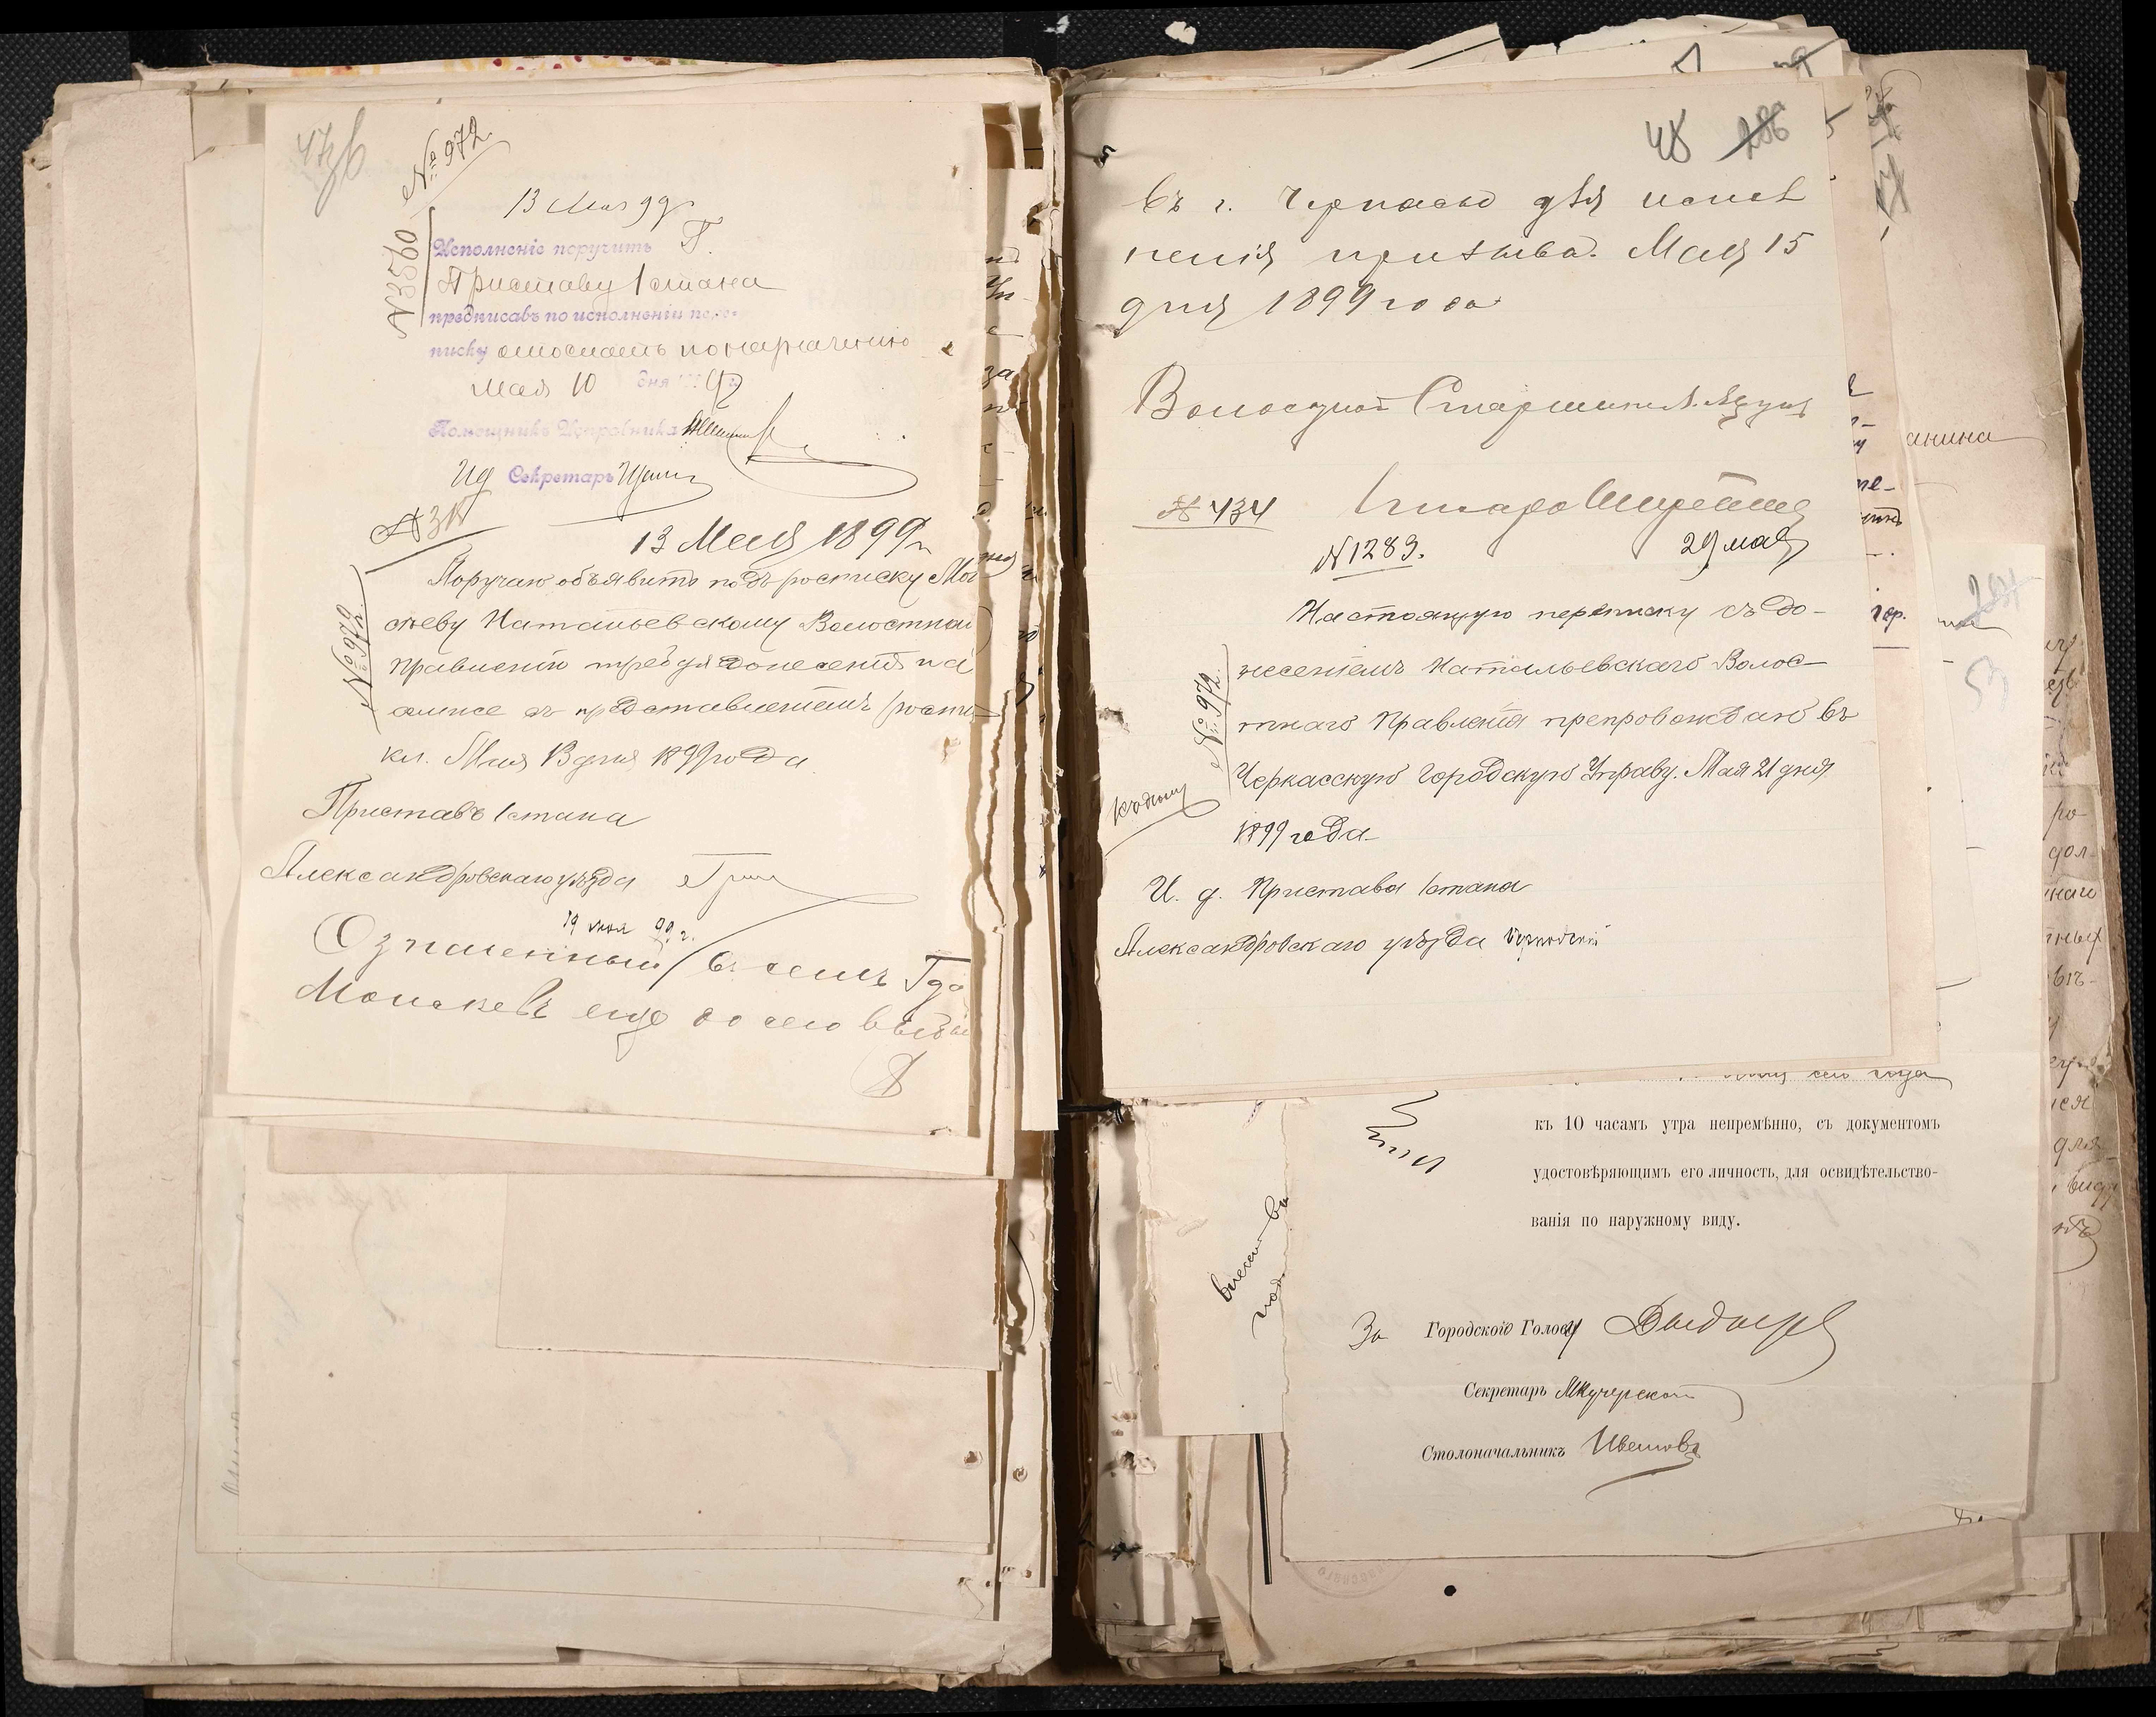 47об
№ 972
13 Мая 99 г.
№ 3560
Исполненіе поручить Г.
Приставу 1 стана
предписавъ по исполненіи пере-
писку отослать по назначенію
Мая 10 дня 99
Помощникъ Исправника
Ид Секретарь
13 Мая 1899 г.
№ 972
Поручаю объявить подъ росписку Мой
сѣеву Натальевскому Волостном
Правленію требуя донесенія на
оимсе съ представленіемъ роспи-
ки. Мая 13 дня 1899 года
Приставъ 1 стана
Александровскаго уѣзда
19 мая 99 г.
Означенный въ семъ Гдо
Моисеевъ еще до сего выбы
48 286
въ г. Черкасы для испол
ненія призыва. Мая 15
дня 1899 года
Волостной Старшина
№ 434
№ 1283.
29 мая
Настоящую переписку съ до-
несеніемъ Натальевскаго Волос-
тнаго Правленія препровождаю въ
№ 972
Черкасскую Городскую Управу. Мая 21 дня
1899 года
къ дѣлу
И. д. Пристава 1 стана
Александровскаго уѣзда
анина
сего года
къ 10 часамъ утра непремѣнно, съ документомъ
удостовѣряющимъ его личность, для освидѣтельство-
ванія по наружному виду.
За Городского Голову
Секретарь МКучерской
Столоначальникъ